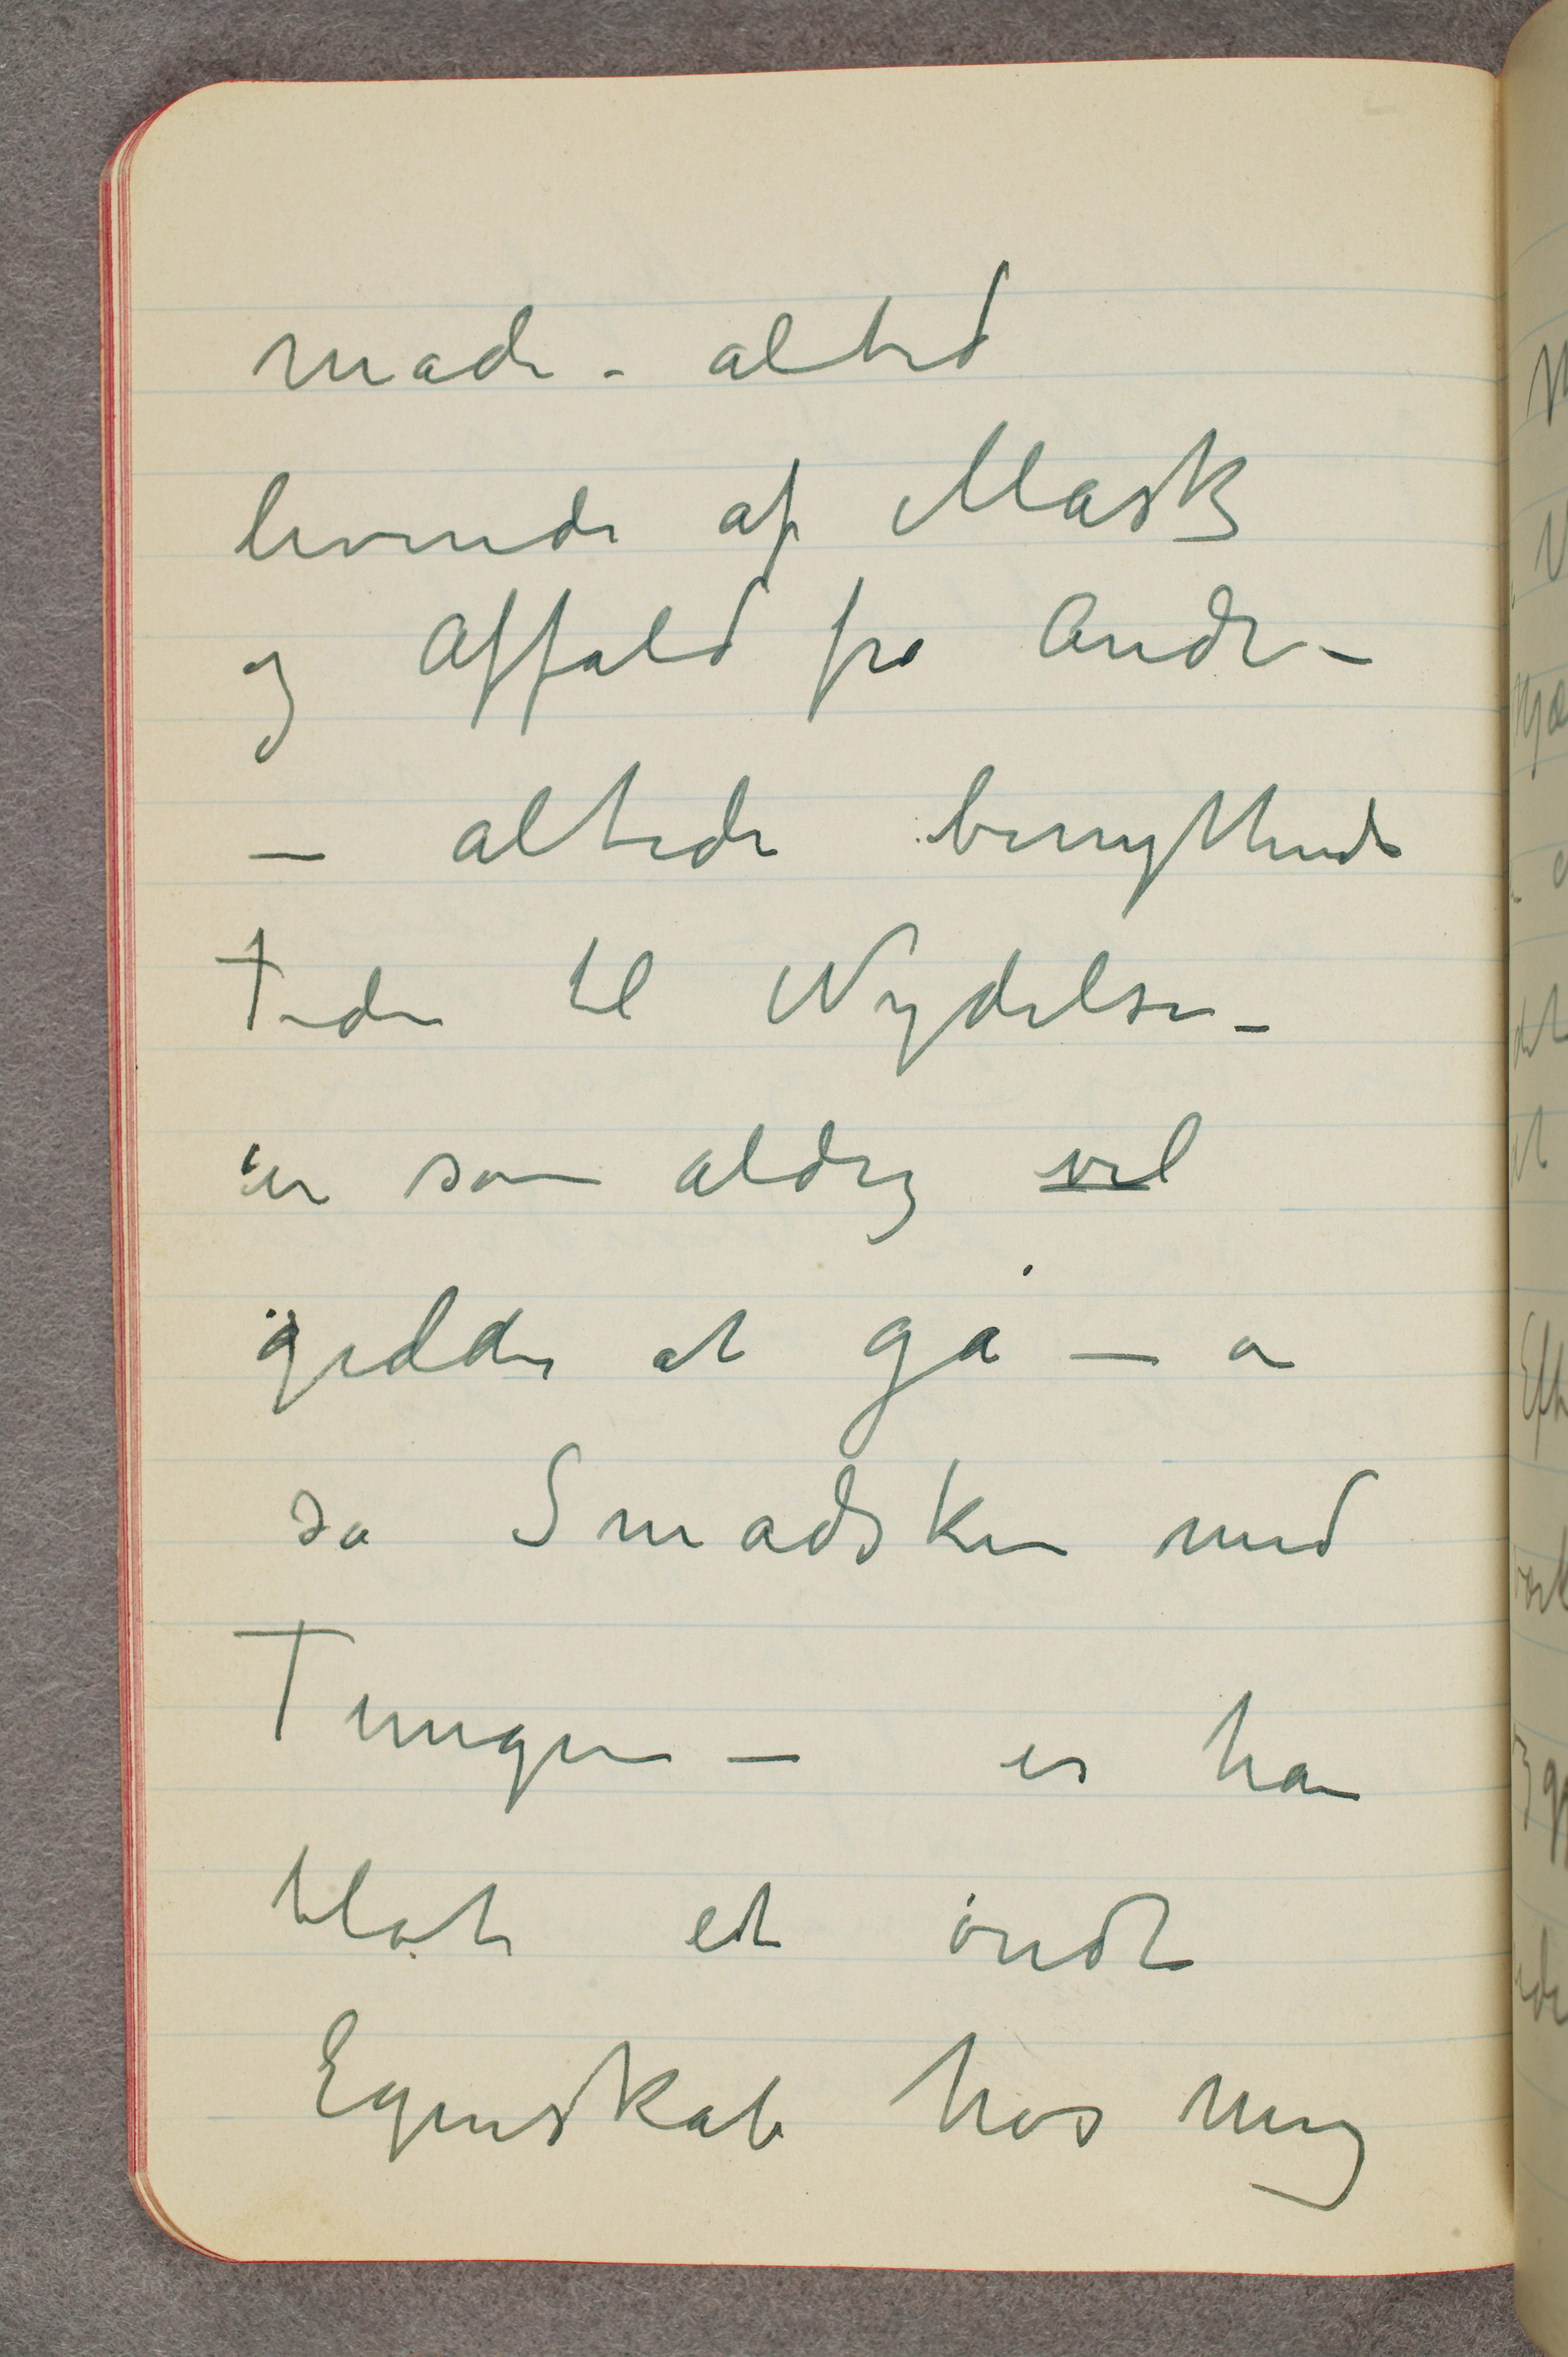 made – altid
levende af Mask
og Affald fra Andre –
– altide benyttende
Tiden til Nydelse –
er som aldrig vil
gidde at gå – o
så Smadsken med
Tungen – er han
blot et ondt
Egenskab hos mig